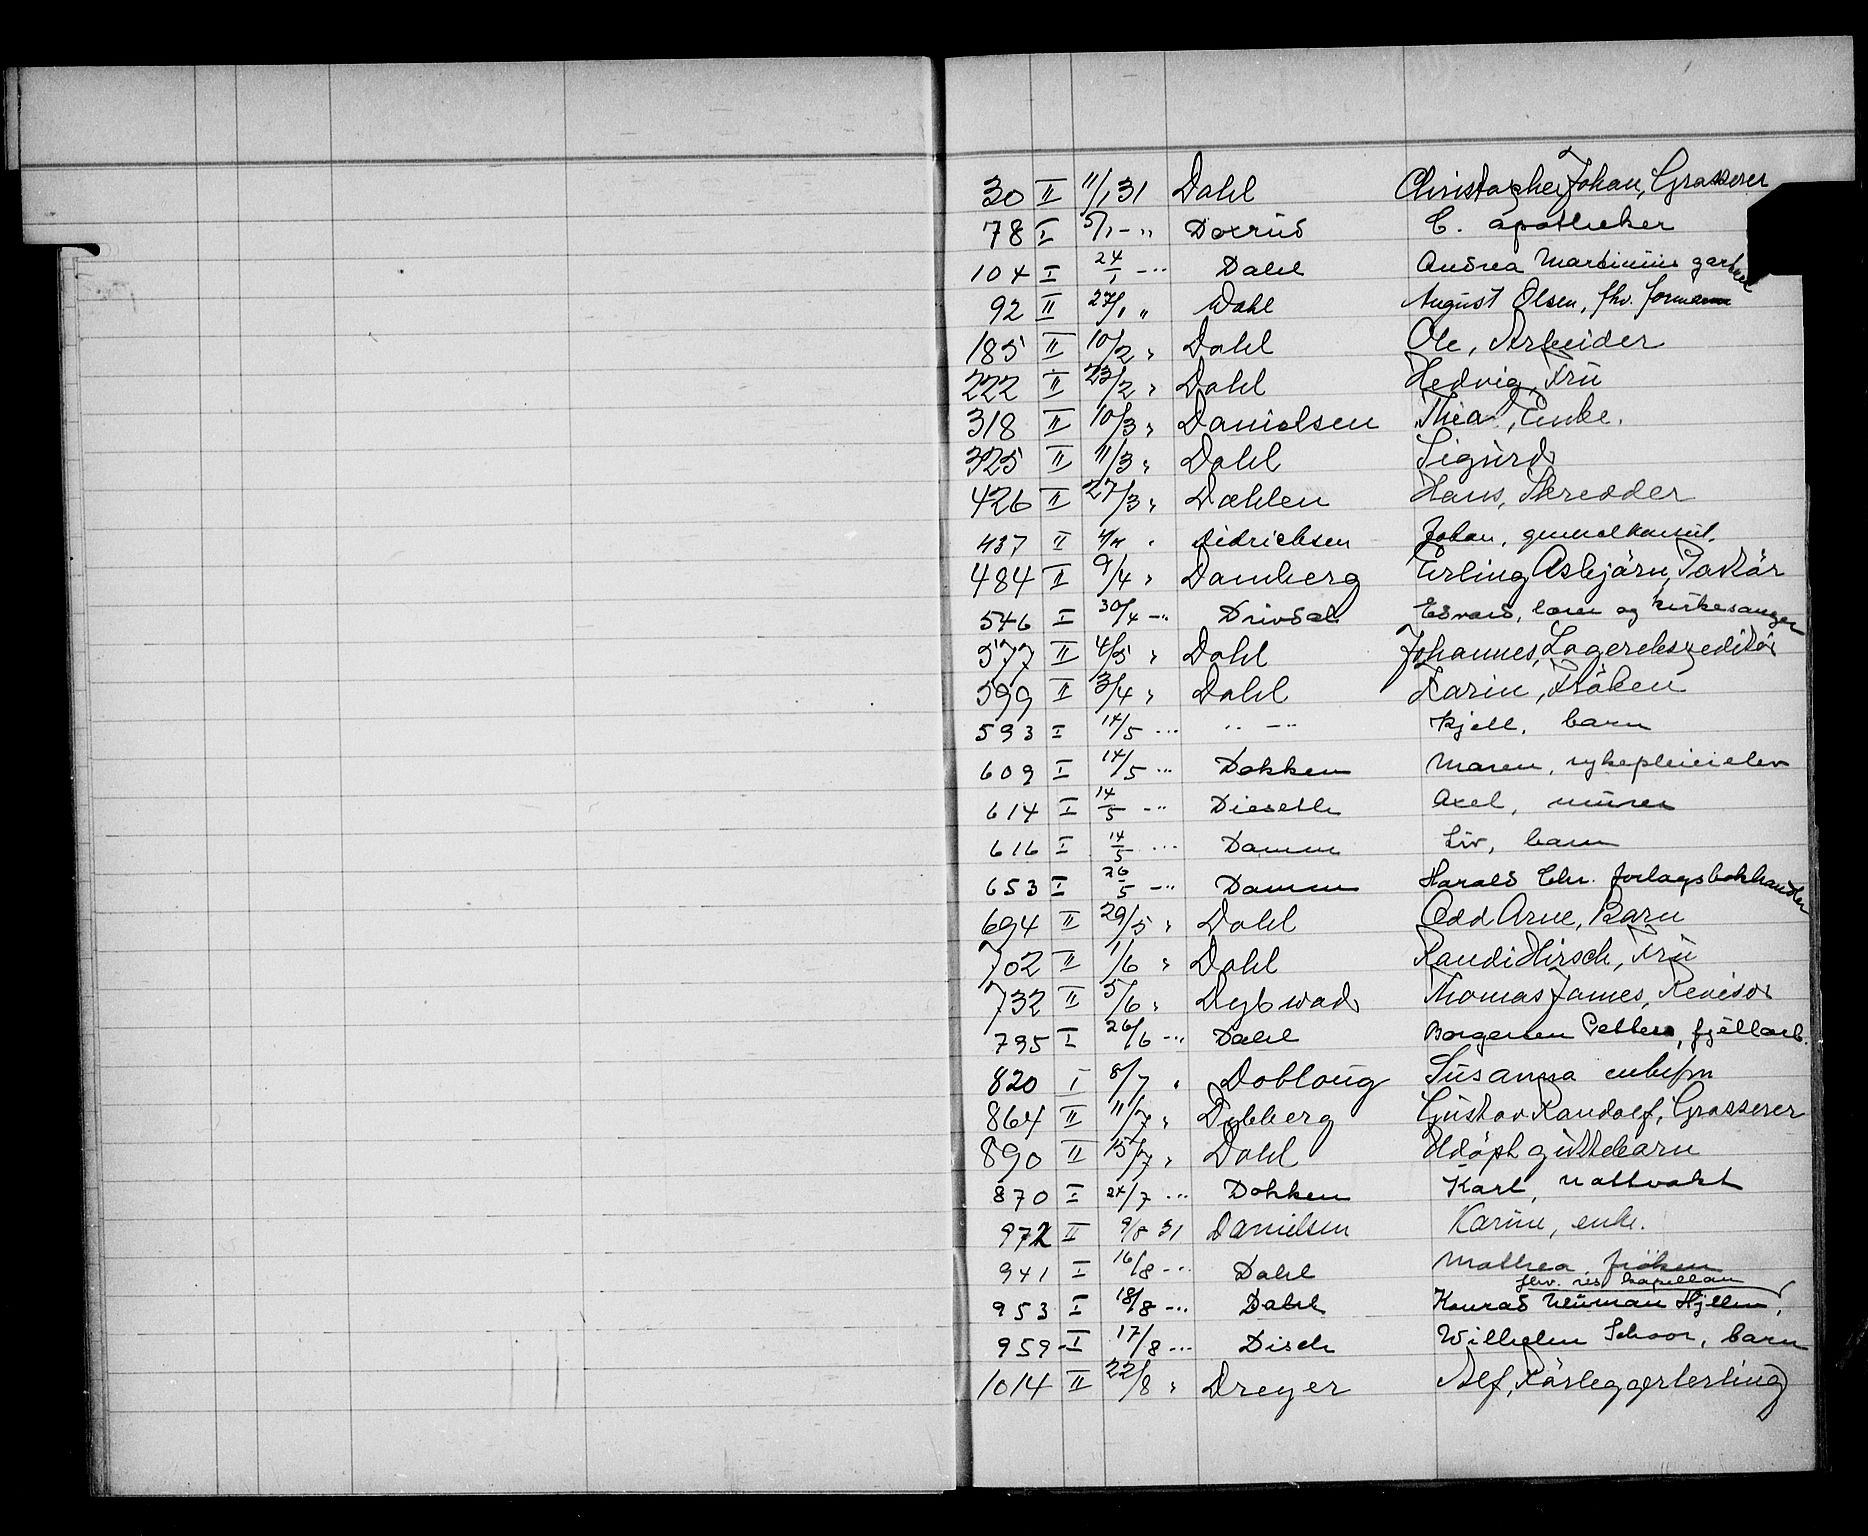 30 II 11/1 31 Dahl Christopher Johan, Grosserer
78 I 5/1 - " Doxrud C. apotheker
104 I 24/1 - " Dahl Andrea Martinius
92 II 27/1 " Dahl August Olsen, fhv. formann
185 II 10/2 " Dahl Ole, Arbeider
222 II 23/2 " Dahl Hedvig, Frü
318 II 10/3 " Danielsen Thea, Enke.
325 II 11/3 " Dahl Sigurd
426 II 27/3 " Dahlen Hans, Skredder
437 II 4/4 " Didrichsen Johan, generalkonsul.
484 II 9/4 " Damberg Erling Asbjörn,
546 I 30/4 - " Drivdal Edvard, lærer og kirkesanger
577 II 4/5 " Dahl Johannes, Lagerekspeditör
599 II 3/4 " Dahl Karin, Fröken
593 I 14/5 - " " - " Kjell, barn
609 I 14/5 - " Dokken Maren, sykepleieielev
614 I 14/5 - " Dieseth Axel, murer
616 I 14/5 - " Damm Liv, barn
653 I 26/5 - " Damm Harald Chr. forlagsbokhandler
694 II 29/5 " Dahl Odd Arne, Barn
702 II 1/6 " Dahl Randi Hirsch, Frü
732 II 5/6 " Dybwad Thomas James, Revisor
795 I 26/6 - " Dahl Borgersen Petter, fjellarb.
820 I 8/7 " Dobloug Susanna enkefrn
864 II 11/7 " Dybberg Gustav Randolf, Grosserer
890 II 15/7 " Dahl Udöpt guttebarn
870 I 24/7 - " Dokken Karl, nattvakt
972 II 9/8 31 Danielsen Karine, enke.
941 I 16/8 - " Dahl Mathea fröken
fhv. res kapellan
953 I 18/8 - " Dahl Konrad Neuman Hjelm,
959 - I 17/8 - " Disch Wilhelm Schoor, barn
1014 II 22/8 " Dreyer Alf, Rörleggerlerling